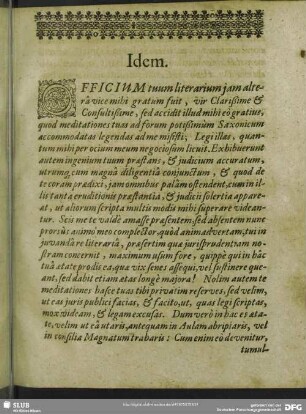 Idem.
OFFICIUM tuum literarium jam alte-
râ vice mihi gratum fuit, vir Clarißime &
Consultißime, sed accidit illud mihi eò gratius,
quod meditationes tuas ad forum potißimùm Saxonicum
accommodatas legendas ad me misisti; Legi illas, quan-
tum mihi per ocium meum negociosum licuit. Exhibuerunt
autem ingenium tuum præstans, & judicium accuratum,
utrumq; cum magnâ diligentiâ conjunctum, & quod de
te coram prædixi, jam omnibus palàm ostendent, cum in il-
lis tanta eruditionis præstantia, & judicii libertas appare-
at, ut aliorum scripta multis modis mihi superare videan-
tur. Scis me te valdè amasse præsentem, sed absentem nunc
prorsùs animi meo complector, quòd animadvertam, tui in
juvanda re literariâ, præsertim quæ jurisprudentiam no-
stram concernit, maximum usum fore, quippe qui in hâc
tuâ ætate prodis ea, quæ vix senes assequi, vel sustinere que-
ant, sed dabit etiam ætas longè majora! Nolim autem te
meditationes hasce tuas tibi privatim reserves, sed velim,
ut eas juris publici facias, & facito, ut, quas legi scriptas,
mox videam, & legam excusas. Dum verò in hac es æta-
te, velim ut eâ utaris, antequam in Aulam abripiaris, vel
in consilia Magnatum traharis: Cum enim eò devenitur,
tumul-